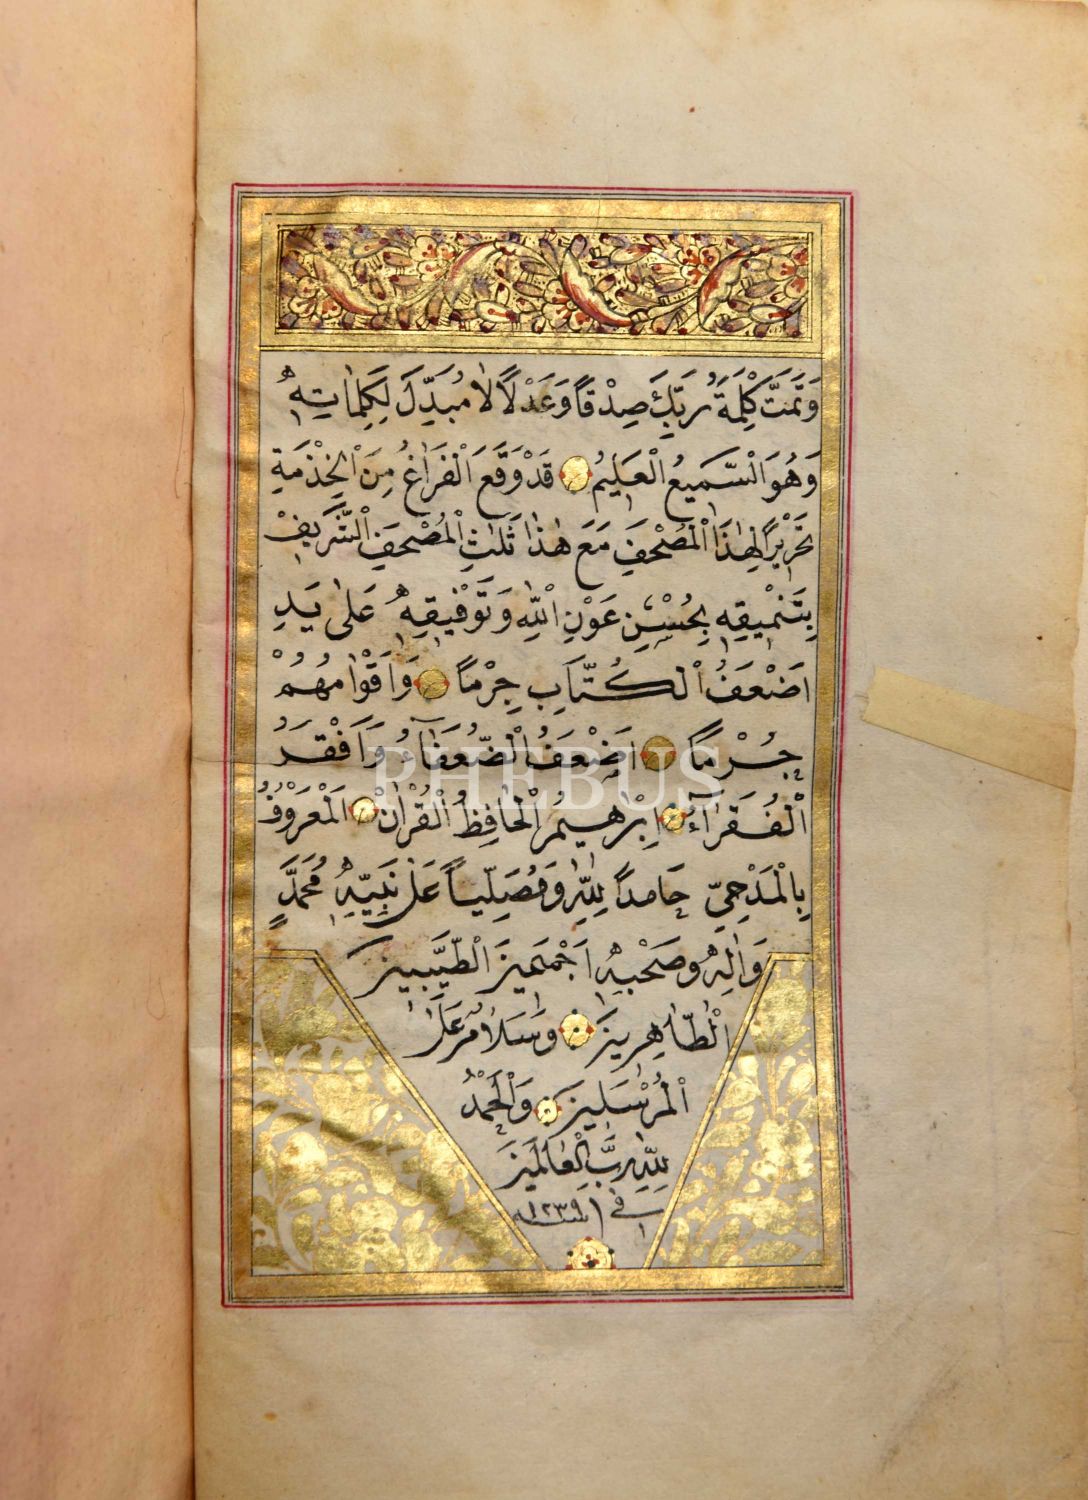 وَتَمَّتْ كَلِمَةُ رَبِّكَ صِدْقًا وَعَدْلًا لَا مُبَدِّلَ لِكَلِمَاتِهِ
وَهُوَ السَّمِيعُ الْعَلِيمُ قَدْ وَقَعَ الْفَرَاغُ مِنَ الْخِدْمَةِ
تَحْرِيرًا لِهٰذَا الْمُصْحَفِ مَعَ هٰذَا ثَلٰثِ الْمُصْحَفِ الشَّرِيفِ
بِتَنْمِيقِهِ بِحُسْنِ عَوْنِ اللّٰهِ وَتَوْفِيقِهِ عَلٰى يَدِ
اَضْعَفُ الْكُتَّابِ جِرْمًا وَاَقْوَامُهُمْ
جُرْمًا اَضْعَفُ الضُّعَفَآءُ وَاَفْقَدُ
الْفُقَرَآءُ اِبْرٰهِيمُ الْحَافِظُ الْقُرْاٰنْ الْمَعْرُوفُ
بِالْمَدْحِيِّ حَامِدًا لِلّٰهِ وَمُصَلِّيًا عَلٰى نَبِيِّهِ مُحَمَّدٍ
وَاٰلِهِ وَصَحْبِهِ اَجْمَعِينَ الطَّيِّبِينَ
الطَّاهِرِينَ وَسَلَامٌ عَلَى
الْمُرْسَلِينَ وَالْحَمْدُ
لِلّٰهِ رَبِّ الْعَالَمِينَ
فى سنه ١٢٣٩
PHEBUS